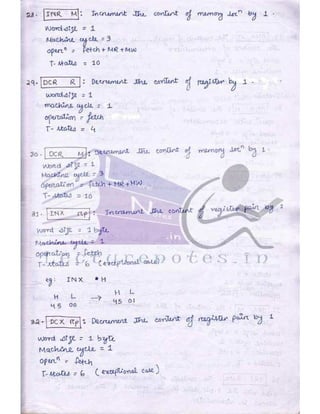 28. INR M : Increment the content of memory locn by 1.
word size = 1
Machine cycle = 3
opern = fetch + MR + MW
T-states = 10
29. DCR R : Decrement the content of register by 1.
word size = 1
machine cycle = 1
operation = fetch
T-states = 4
30. DCR M : Decrement the content of memory locn by 1.
word size = 1
Machine cycle = 3
operation = fetch + MR + MW
T-states = 10
31. INX rp : Increment the content of register pair by 1
word size = 1 byte
Machine cycle = 1
operation = fetch
T-states = 6 (exceptional case)
eg: INX H
H L → H L
45 00 45 01
32. DCX rp : Decrement the content of register pair by 1
word size = 1 byte
Machine cycle = 1
opern = fetch
T-states = 6 (exceptional case)